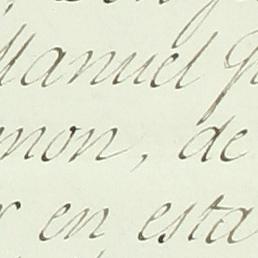 Manuel
mon, de
en esta